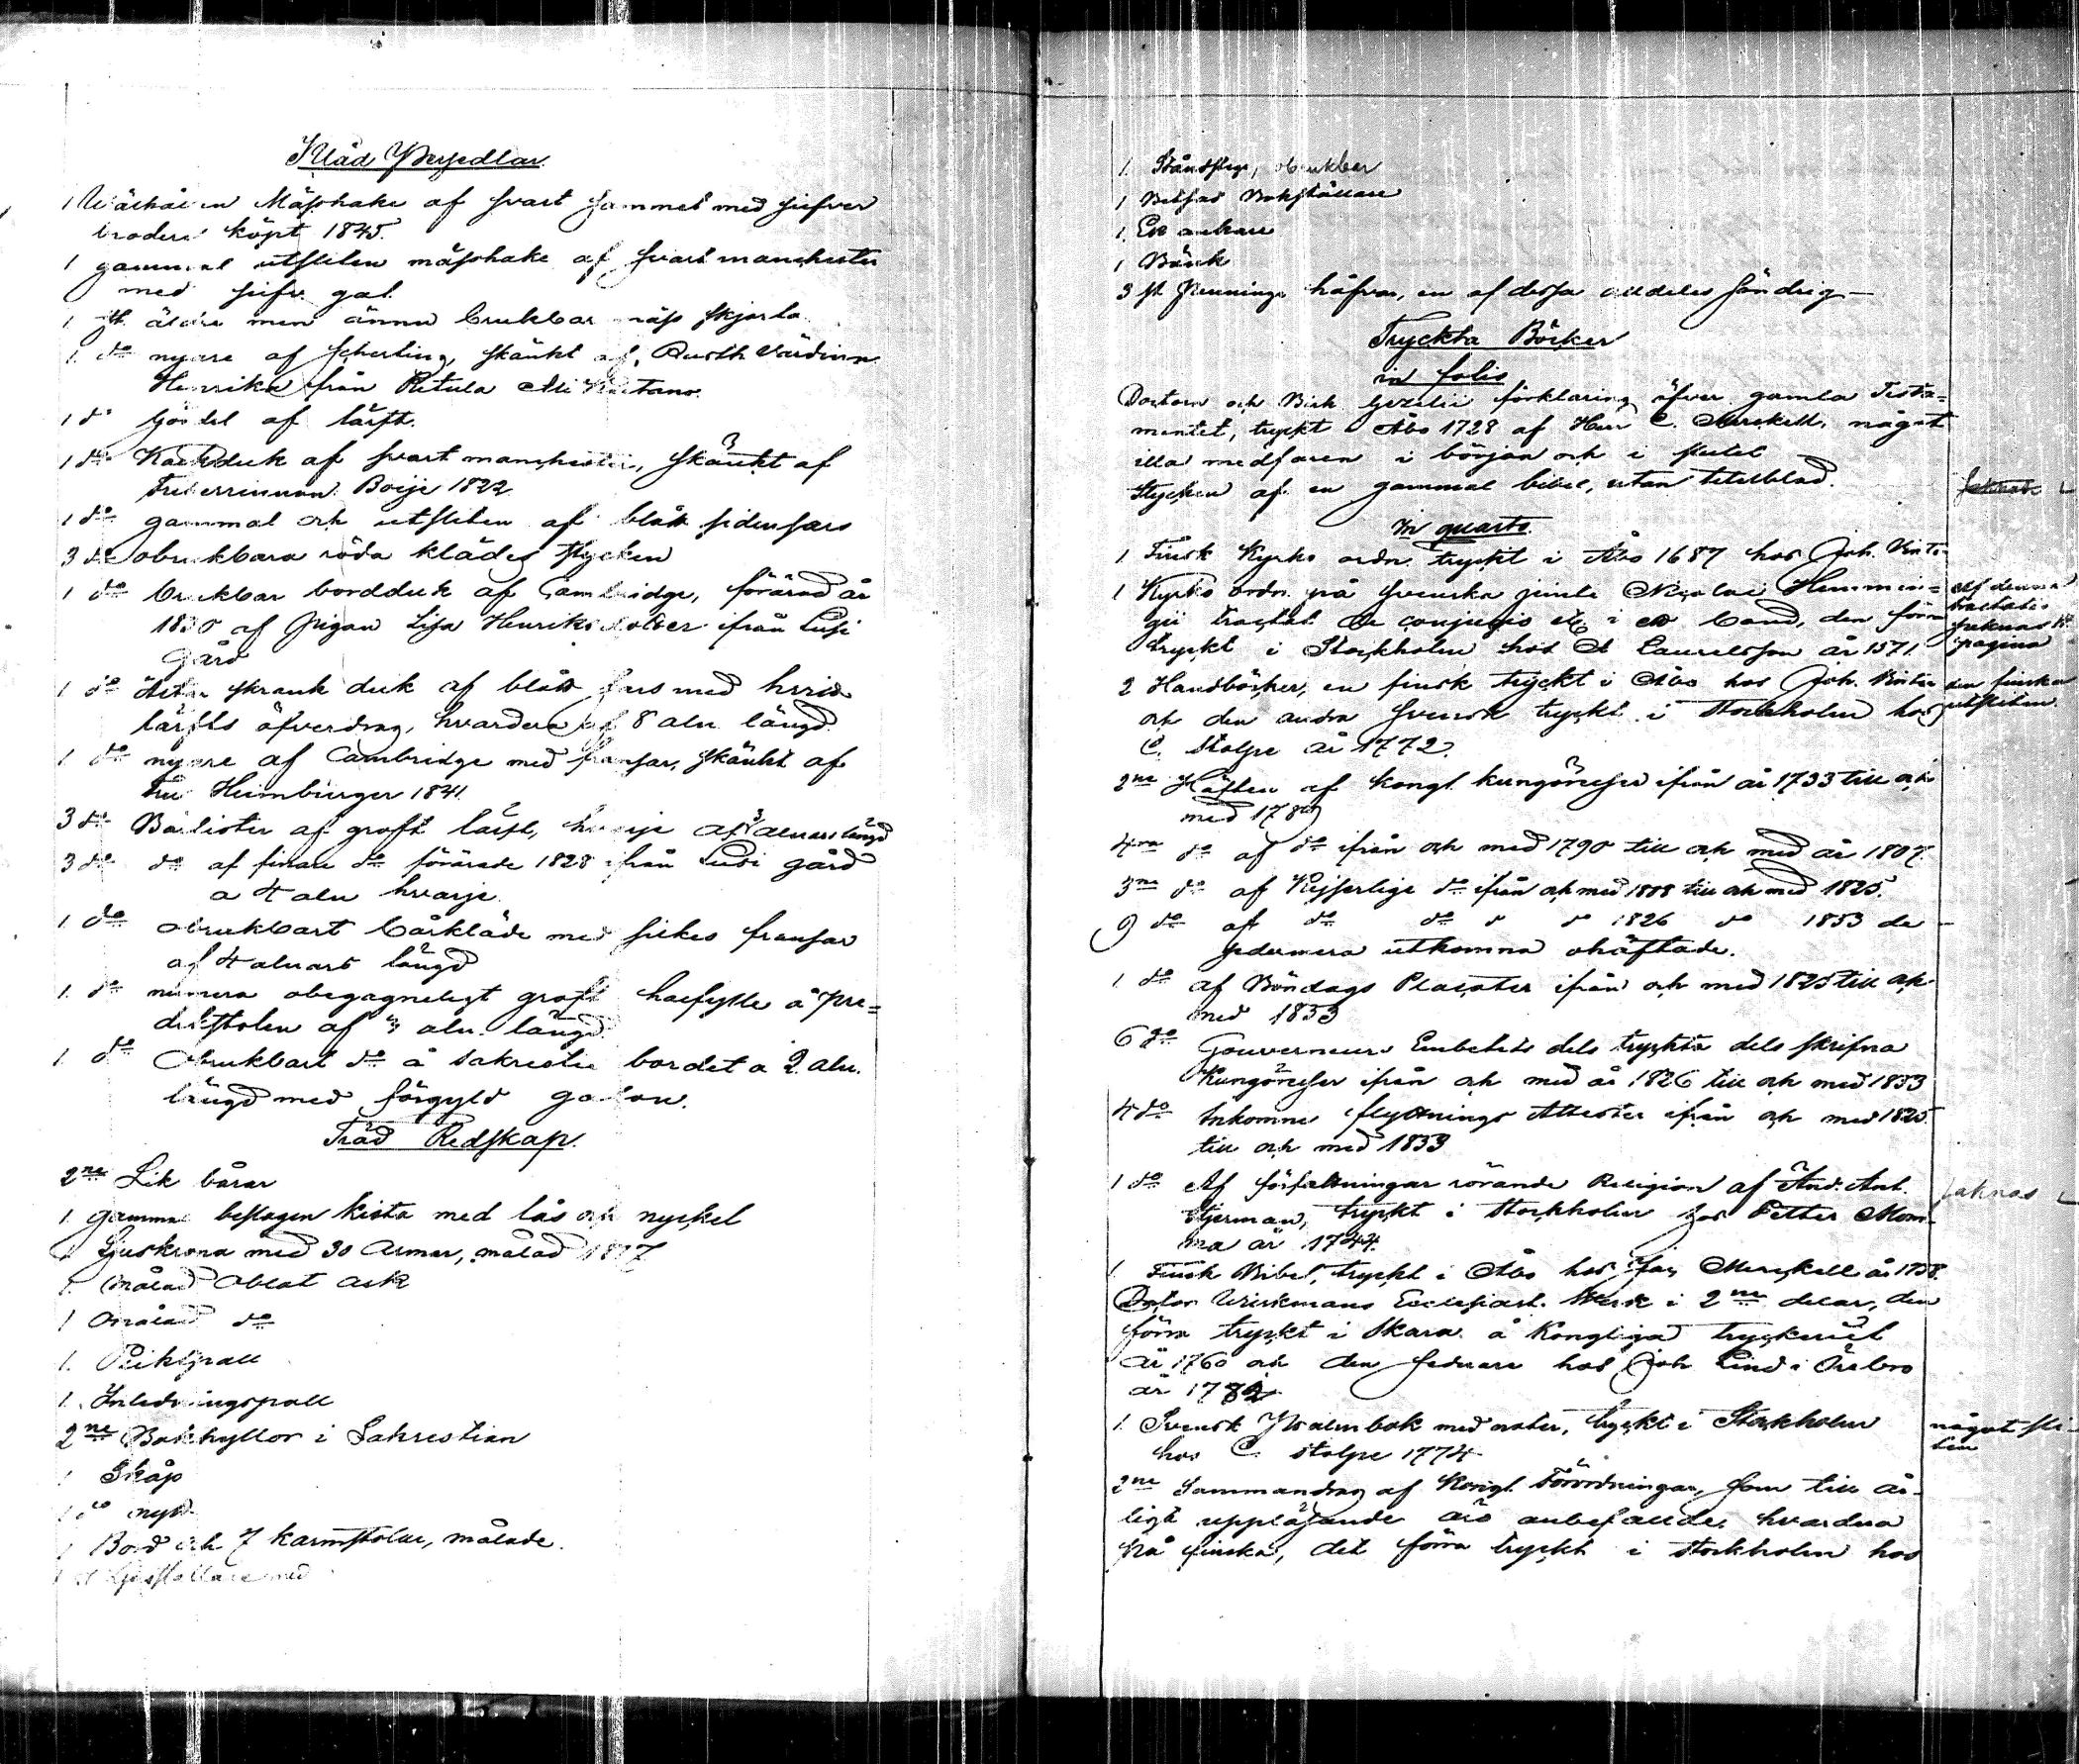 Kläd Persedlar.
1 Mässhake af svart sammet med silfver
broderi köpt 1845.
1 gammal utsliten mässhake af svart manchester
med silfv. gal.
1. st. äldre men ännu brukbar mäss skjorta
1. do nyare af scherting, skänkt af Rusth. Värdinn
Henrika från Retula
1 do Gördel af lärft.
1 do Kalkduk af svart manchester, skänkt af
Friherrinnan Boije 1822
1 do gammal och utsliten af blått sidensars
3 do obrukbara röda klädes stycken
1 do brukbar bordduk af Cambridge, förärad år
1830 af Pigan Lisa Henriksdotter ifrån Lusi
Gård
1 do Altar skrank duk af blått sars med hvit
lärfts öfverdrag, hvardera af 8 aln. längd.
1 do nyare af Cambridge med fransar, skänkt af
Fru Heimbürger 1841.
3 do af groft lärft, hvarje af 3 alnars längd
3 do do af finare do förärade 1828 ifrån Lusi gård
a 4 aln hvarje.
1. do obrukbart bårkläde med silkes fransar
af 4 alnars längd
1. do numera obegagneligt groft å Pre=
dikstolen af 3 aln. längd.
1. do Obrukbart do å sakristie bordet a 2 aln.
längd med förgyld galon.
Träd Redskap.
2ne Lik bårar
1. gammal beslagen kista med lås och nyckel
1 Ljuskrona med 30 Armar, målad
1. målad Oblat ask
1 Omålad do
1. Piktpall
1. Inledningspall
2ne Bokhyllor i Sakristian
1 Skåp
1 do nytt
1 Bord och 7 karmstolar, målade.
med
1. obrukbar
1 Bokställare
1.
1 Bänk
3 st. Pennings håfvar, en af dessa alldeles söndrig
Tryckta Böcker
in folio
Doctorn och Bisk. Gezelii förklaring öfver gamla Testa=
mentet, tryckt i Åbo 1728 af Herr C. Merckell, något
illa medfaren i början och i slutet
Stycken af en gammal bibel, utan titelblad.
In quarto.
1 Finsk Kyrko ordn. tryckt i Åbo 1687 hos Joh. Vinte
1 Kyrko ordn. på Svenska jemte Nicolai Hemmin=
gii tractat de conjugio etc. i ett band, den förra
tryckt i Stockholm hos A Laurelsson år 1571.
Af denna
tractatis
saknas 14
pagina
2 Handböcker, en finsk tryckt i Åbo hos Joh. Vinter
och den andra Svensk tryckt i Stockholm hos
C. Stolpe år 1772.
den finska
utsliten.
2ne Häften af kongl. kungörelser ifrån år 1733 till och
med 1789
4ra do af do ifrån och med 1790 till och med år 1807.
3ne do af Kejserliga do ifrån och med 1808 till och med 1825.
9 do af do do do do 1826 do 1853 de
sednmera utkomna ohäftade.
1. do af Böndags Placater ifrån och med 1825 till och
med 1833
6 do Gouverneurs Embetets dels tryckta dels skrifna
Kungörelser ifrån och med år 1826 till och med 1833
4 do Inkomne flyttnings Attester ifrån och med 1825
till och med 1833
1 do Af författningar rörande Religion af And. Ant.
Stjerman, tryckt i Stockholm hos Petter Mom=
ma år 1744.
saknas
1 Finsk Bibel, tryckt i Åbo hos Jac. Merckell år 1758.
Doctor Wirkmans Ecclesiast. Werk i 2ne delar, den
förra tryckt i Skara å Kongliga tryckeriet
år 1760 och den sednare hos Joh Lind i Örebro
år 1782
1. Svensk Psalmbok med noter, tryckt i Stockholm
hos C. Stolpe 1774
något sli-
ten
2ne Sammandrag af Kongl. Förordningar, som till år-
ligt uppläsande äro anbefallde, hvardera
på finska, det förra tryckt i Stockholm hos